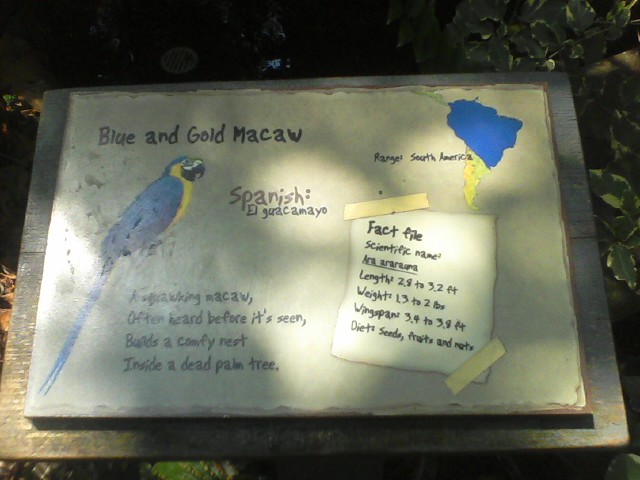 Blue and Gold Macaw
Range: South America
Spanish:
El guacamayo
Fact file
Scientific name:
Ara ararauna
Length: 2.8 to 3.2 ft
Weight: 1.3 to 2 lbs
Wingspan: 3.4 to 3.8 ft
Diet: Seeds, fruits and nuts
A squawking macaw,
Often heard before it's seen,
Builds a comfy nest
Inside a dead palm tree.